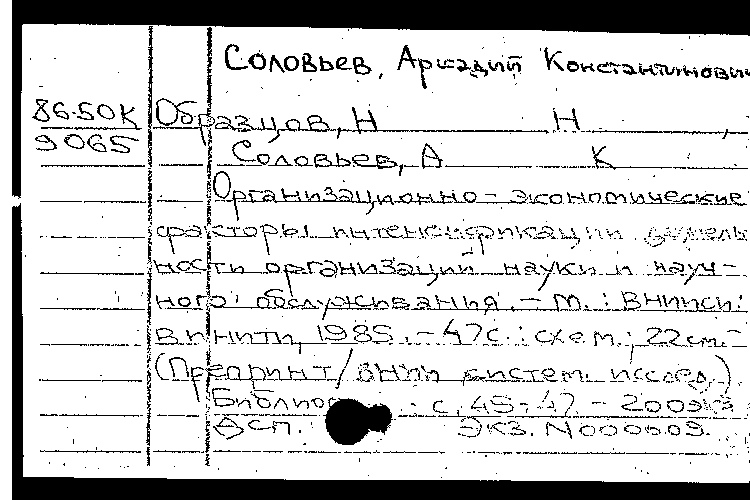 Соловьев, Аркадий Константинович
86-50К Образцов, Н Н ,
9065 Соловьев, А К
Организационно-экономические
факторы интенсификации деятель
ности организаций науки и науч-
ного обслуживания. - М. : ВНИИСИ:
ВИНИТИ, 1985. - 47с. : схем.; 22см. -
(Препринт/ ВНИИ систем. исслед.).
с. 45-47 - 200экз
ДСП. ЭКЗ. N000009.